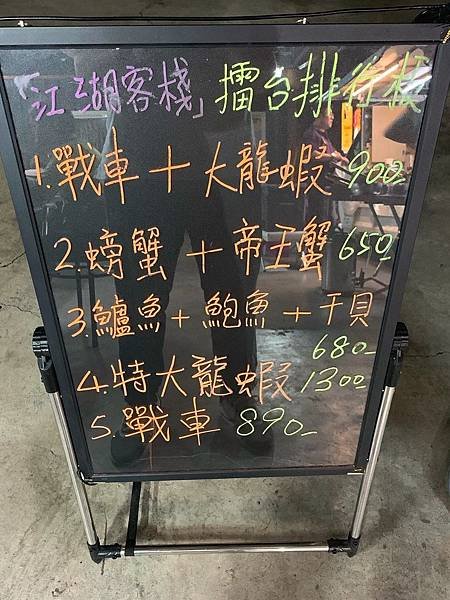 「江湖客棧」擂台排行榜
1.戰車+大龍蝦 900-
2.螃蟹+帝王蟹 650-
3.鱸魚+鮑魚+干貝
680-
4.特大龍蝦 1300-
5.戰車 890-